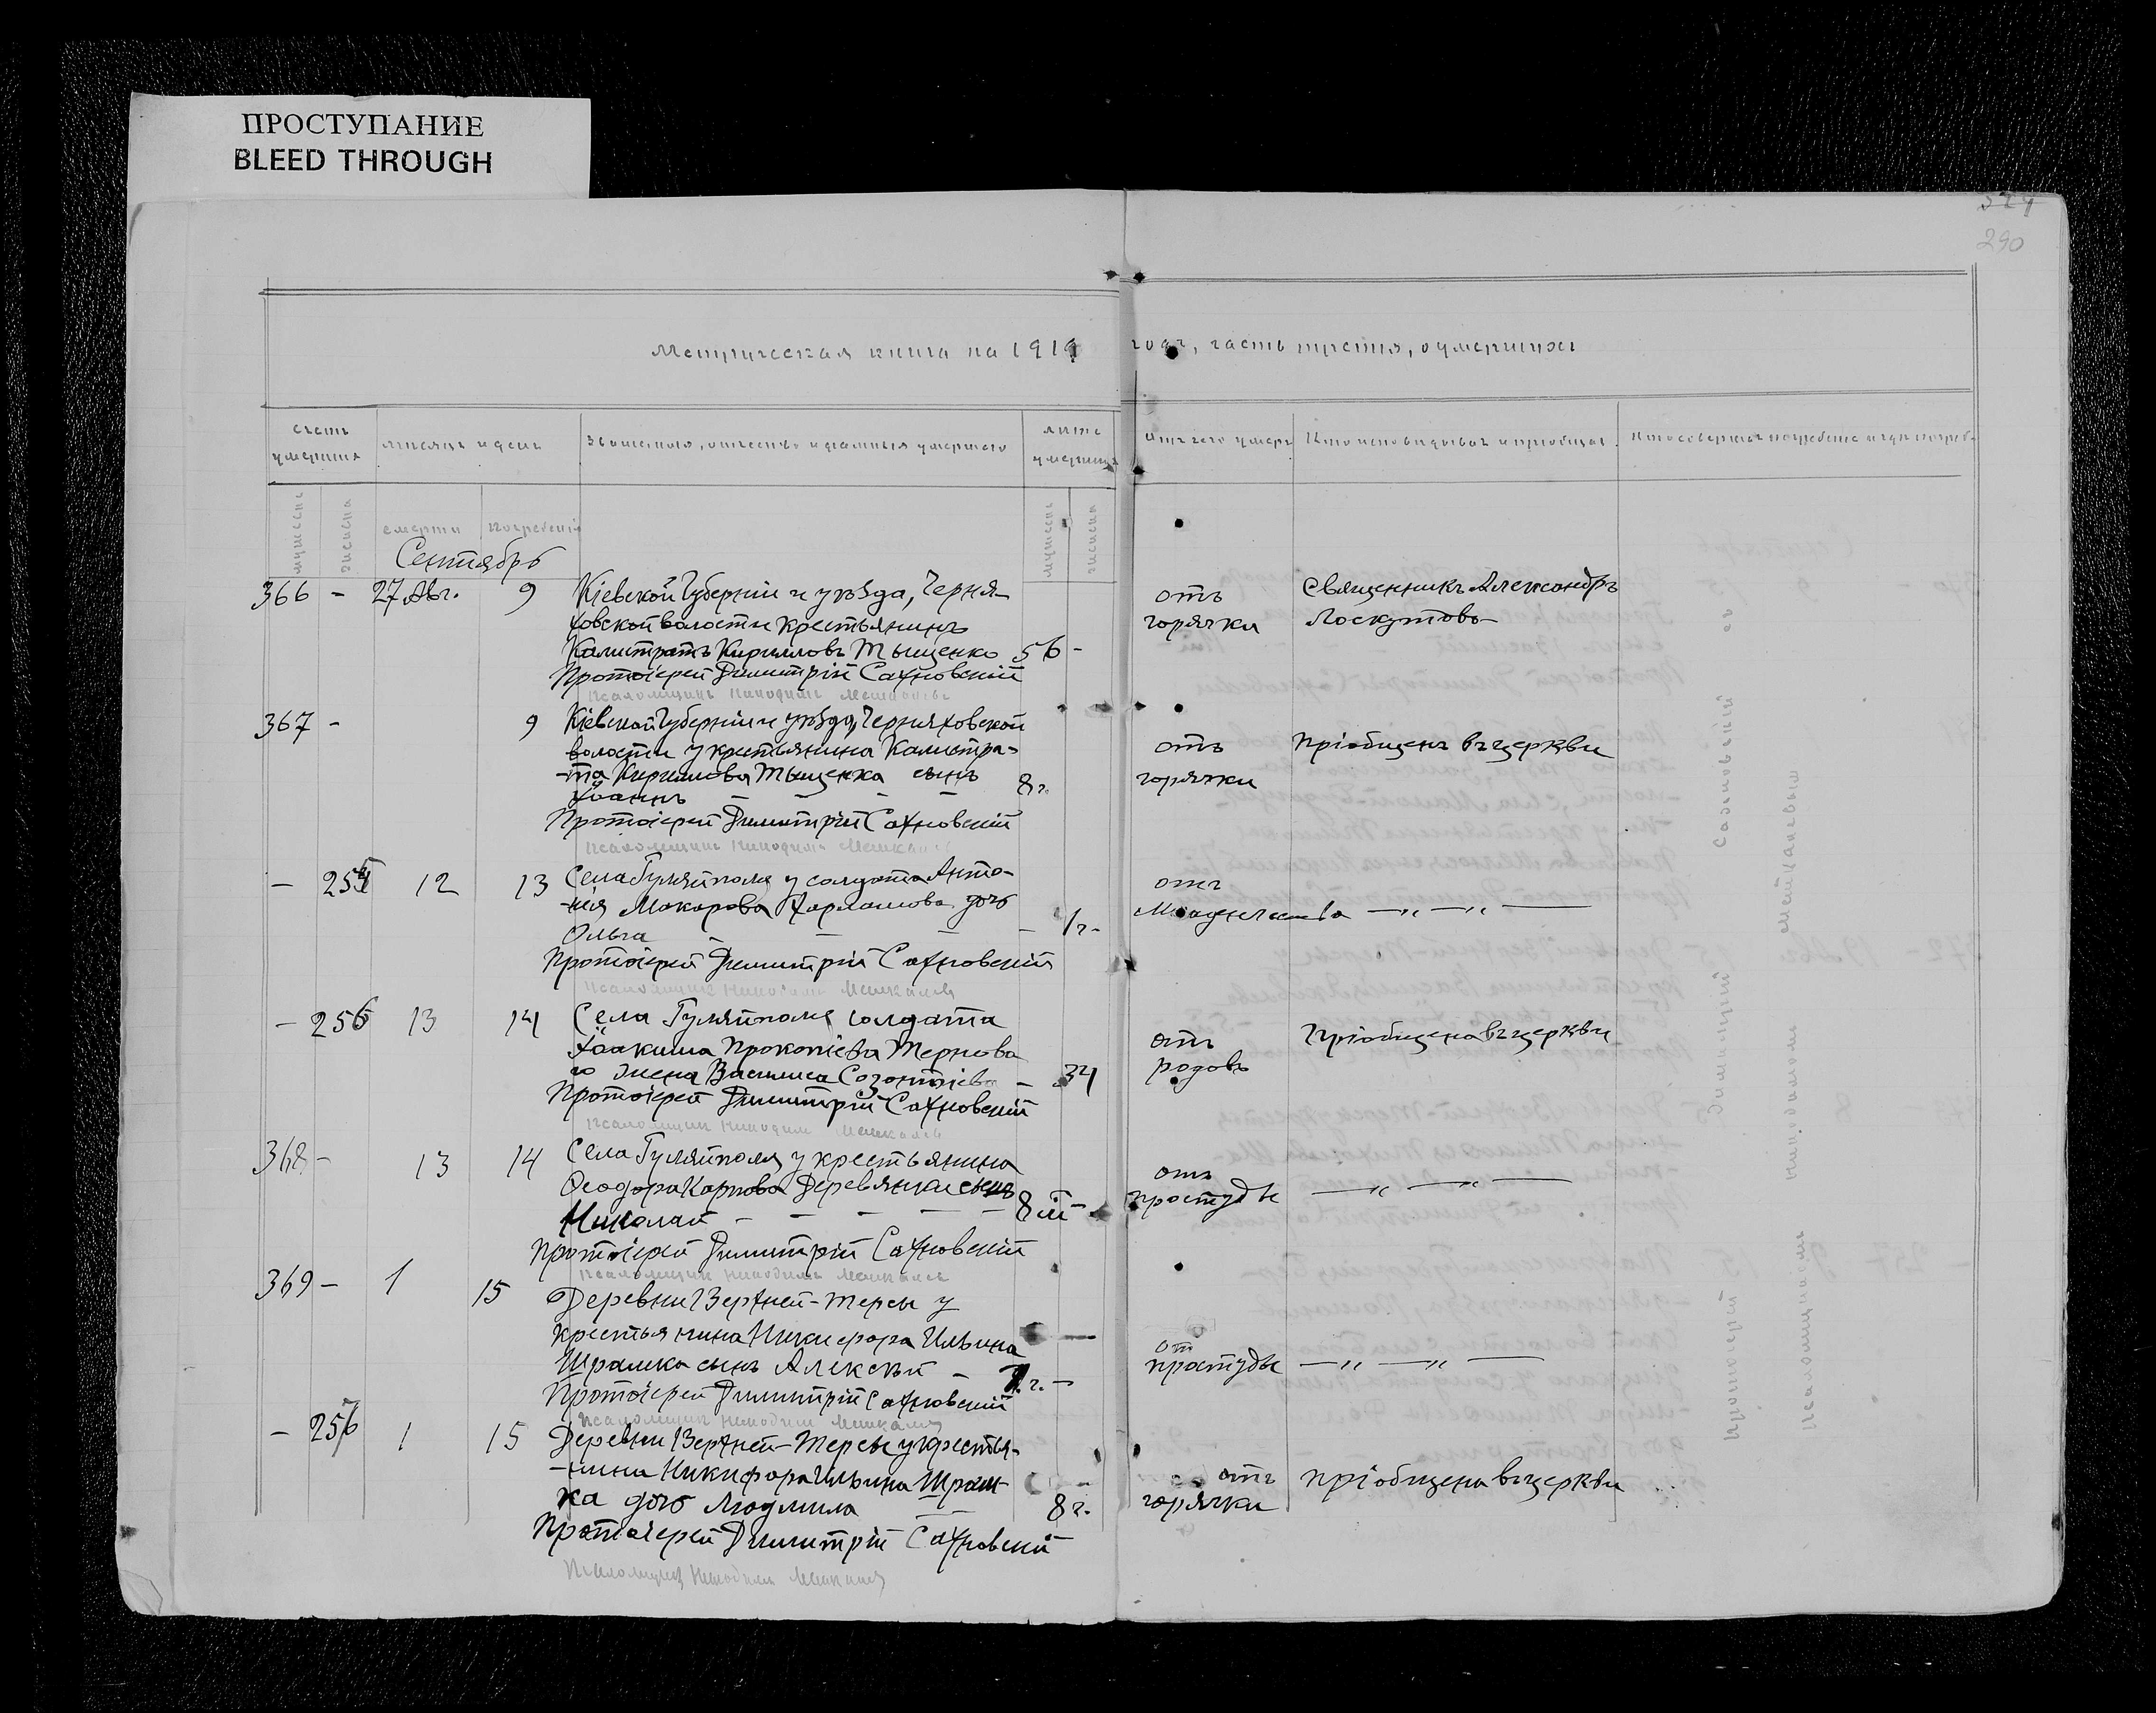 ПРОСТУПАНИЕ
BLEED THROUGH
324
290
Метрическая книга на 1919 годъ, часть третья, о умершихъ
Счетъ умершихъ
Мѣсяцъ и день
Званіе, имя, отчество и фамилія умершаго
Лѣта умершихъ
Отъ чего умеръ
Кто исповѣдывалъ и пріобщалъ
Кто совершалъ погребеніе и гдѣ погреб.
мужеска
женска
смерти
погребенія
мужеска
женска
Сентябрь
366 - 27 Авг. 9 Кіевской Губерніи и уѣзда, Черня-
ховской волости крестьянинъ
Калистратъ Кирилловъ Тыщенко 56 -
Протоіерей Димитрій Сахновскій
Псаломщикъ Никодимъ
отъ горячки
Священникъ Александръ
Лоскутовъ
367 - 9 Кіевской Губерніи уѣзда, Черняховской
волости у крестьянина Калистра-
-та Кирилова Тыщенка сынъ
Іоаннъ - - - - 8 г.
Протоіерей Димитрій Сахновскій
Псаломщикъ Никодимъ
отъ горячки
Пріобщенъ въ церкви
- 254 12 13 Села Гуляйполя у солдата Анто-
-нія Макарова Харламова дочь
Ольга - - - - 1 г. -
Протоіерей Димитрій Сахновскій
Псаломщикъ Никодимъ
отъ
Младенчества — „ — „ —
- 255 13 14 Села Гуляйполя солдата
Іоакима Прокопіева Тернова
го жена Василиса Созонтіева - 34
Протоіерей Димитрій Сахновскій
Псаломщикъ Никодимъ
отъ родовъ
Пріобщена въ церкви
368 - 13 14 Села Гуляйполя у крестьянина
Ѳеодора Карпова Деревянки сынъ
Николай - - - - - 8 м -
Протоіерей Димитрій Сахновскій
Псаломщикъ Никодимъ
отъ
простуды — „ — „ —
369 - 1 15 Деревни Верхней-Терсы у
крестьянина Никифора Ильина
Шрамка сынъ Алексѣй - г. -
Протоіерей Димитрій Сахновскій
Псаломщикъ Никодимъ
от
простуды — „ — „ —
- 256 1 15 Деревни Верхней-Терсы у крестья-
-нина Никифора Ильина Шрам-
ка дочь Людмила — 8 г.
Протоіерей Димитрій Сахновскій
Псаломщикъ Никодимъ
отъ
горячки
Пріобщена въ церкви